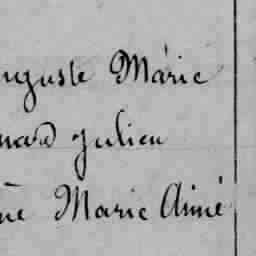 uguste Marie
nard Julien
ne Marie Aimé